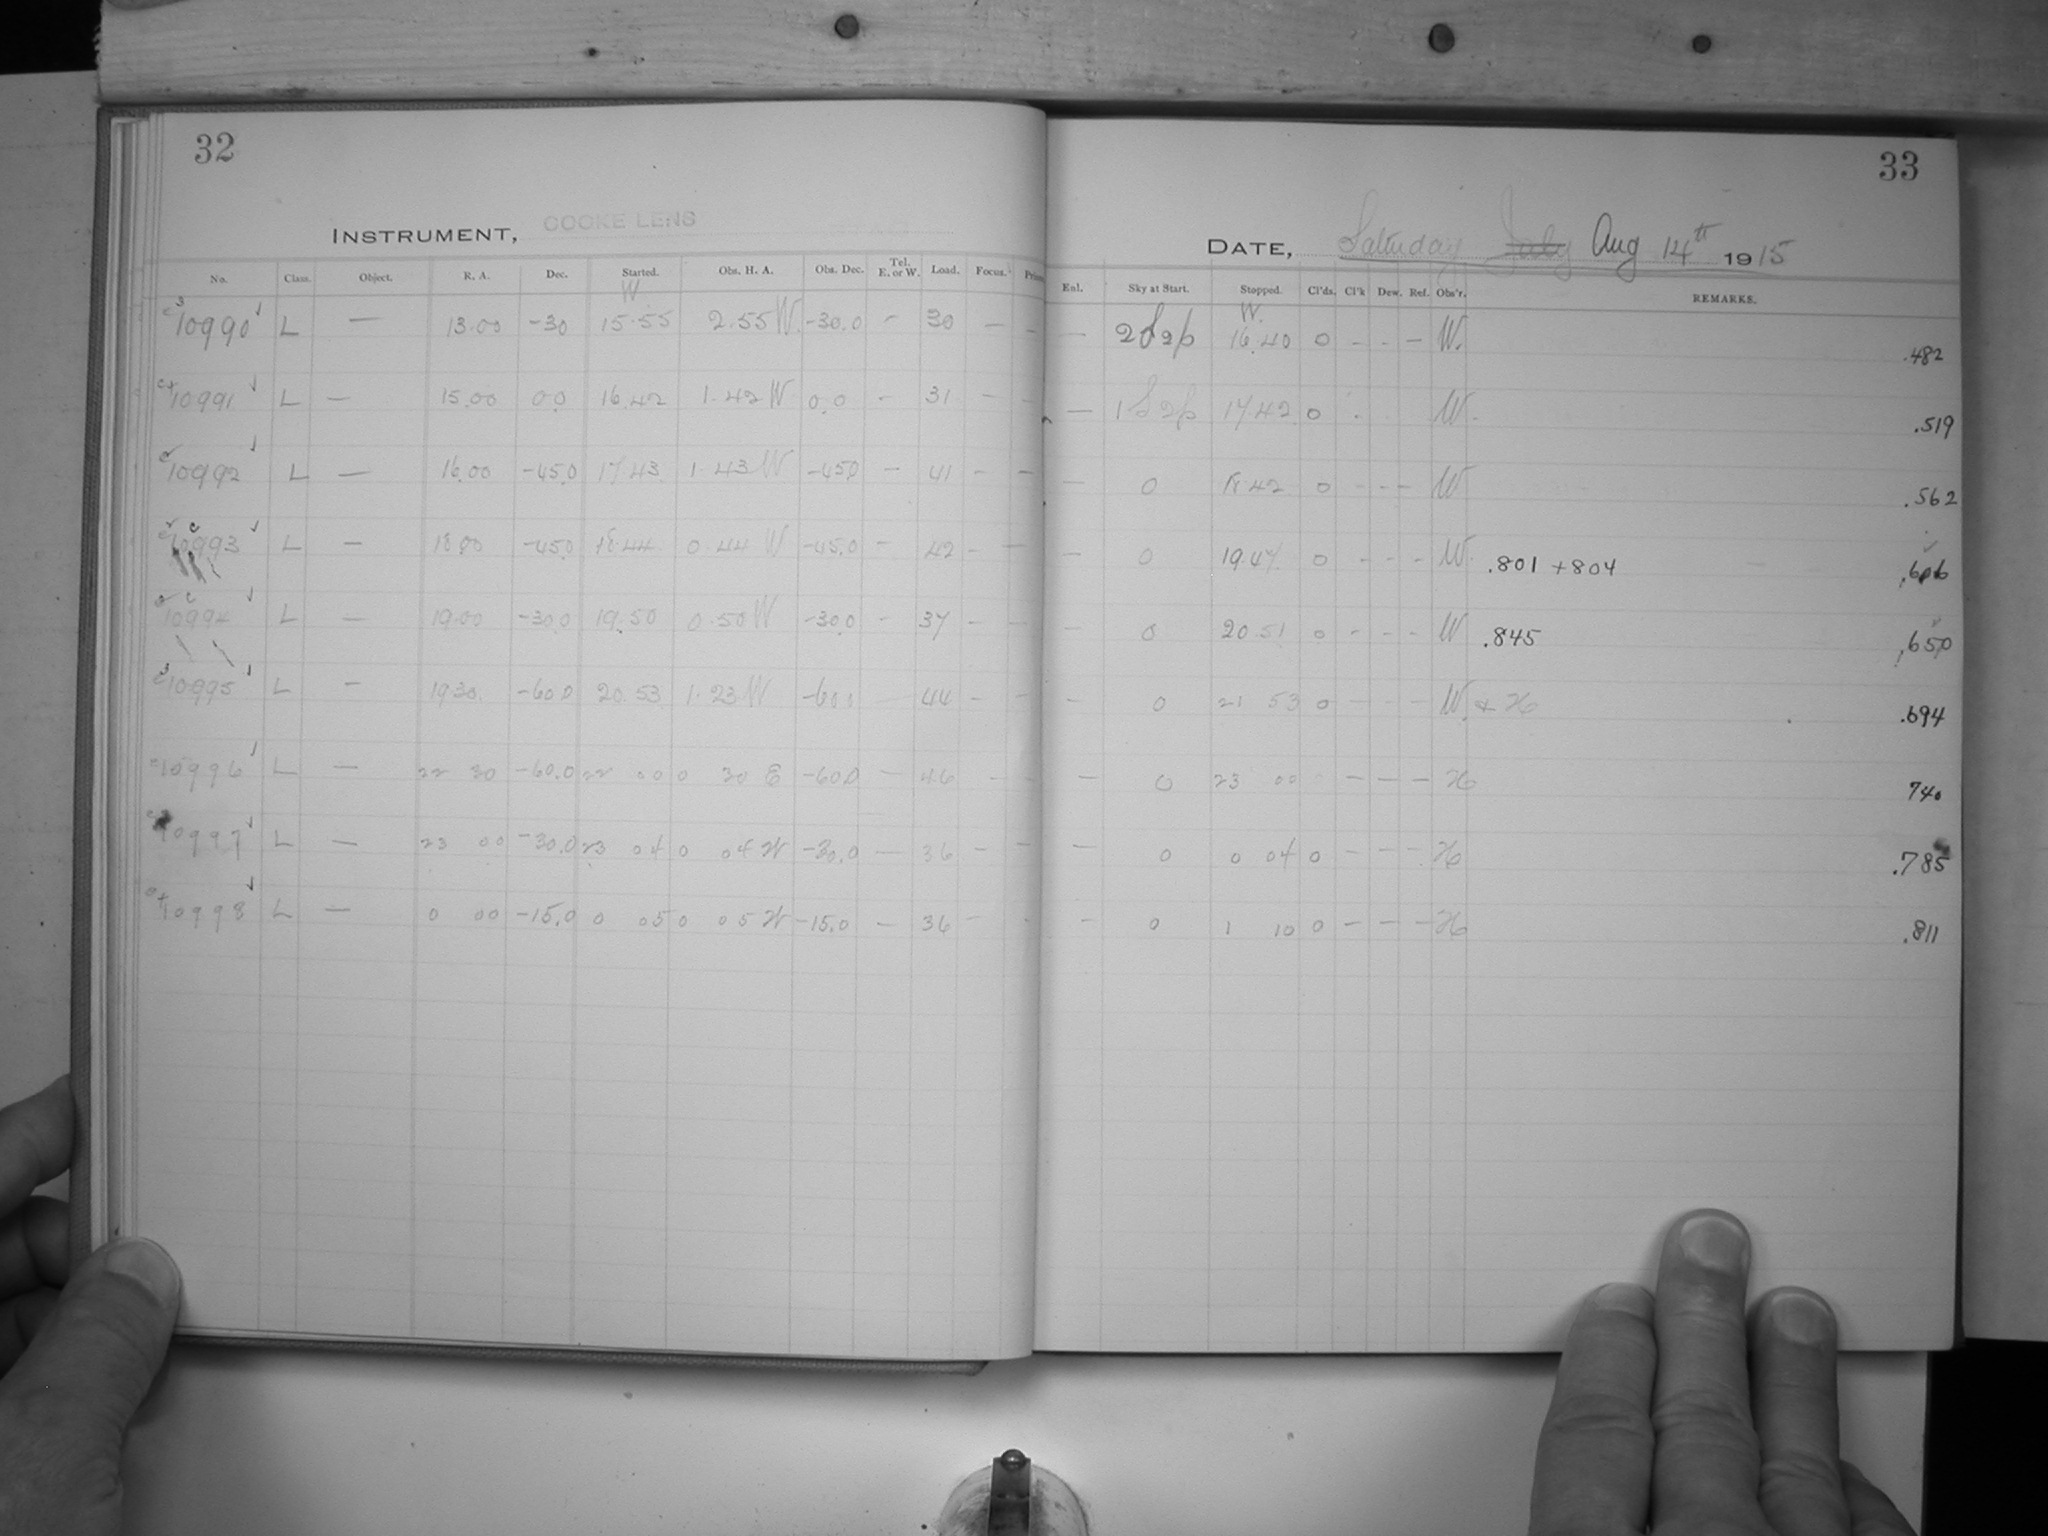 32
INSTRUMENT, COOKE LENS
No. Class. Object. R. A. Dec. Started. Obs. H. A. Obs. Dec. Tel. E. or W. Load. Focus.
W
10990 L — 13.00 -30 15.55 2.55 W. -30.0 - 30 — -
10991 L — 15.00 0.0 16.42 1.42 W 0.0 - 31 — -
10992 L — 16.00 -45.0 17.43 1.43 W -45.0 — 41 — -
10993 L — 18.00 -45.0 18.44 0 44 W -45.0 - 42 - -
10994 L — 19.00 -30.0 19.50 0.50 W -30.0 - 37 - -
10995 L — 19 30. -60.0 20.53 1.23 W -60.0 44 - -
10996 L — 22 30 -60.0 22 00 0 30 E -60.0 — 46 - -
10997 L — 23 00 -30.0 23 04 0 04 W -30.0 — 36 - -
10998 L — 0 00 -15.0 0 05 0 05 W -15.0 — 36 - -
33
DATE, Saturday July Aug 14th 1915
Enl. Sky at Start. Stopped. Cl'ds. Cl'k Dew. Ref. Obs'r. REMARKS.
W.
— 2S2p 16.40 0 - - - W. .482
— 1S2p 17.42 0 W. .519
— 0 18.42 0 - - - W .562
— 0 19.47 0 - - - W. .801 + 804 .606
— 0 20.51 0 - - - W .845 .650
- 0 21 53 0 - - - W. & H .694
— 0 23 00 — — — H 740
— 0 0 04 0 - - - H .785
- 0 1 10 0 - - - H .811